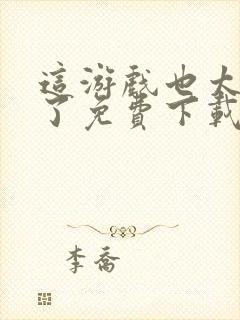 這游戲也太
了免費下載
李喬